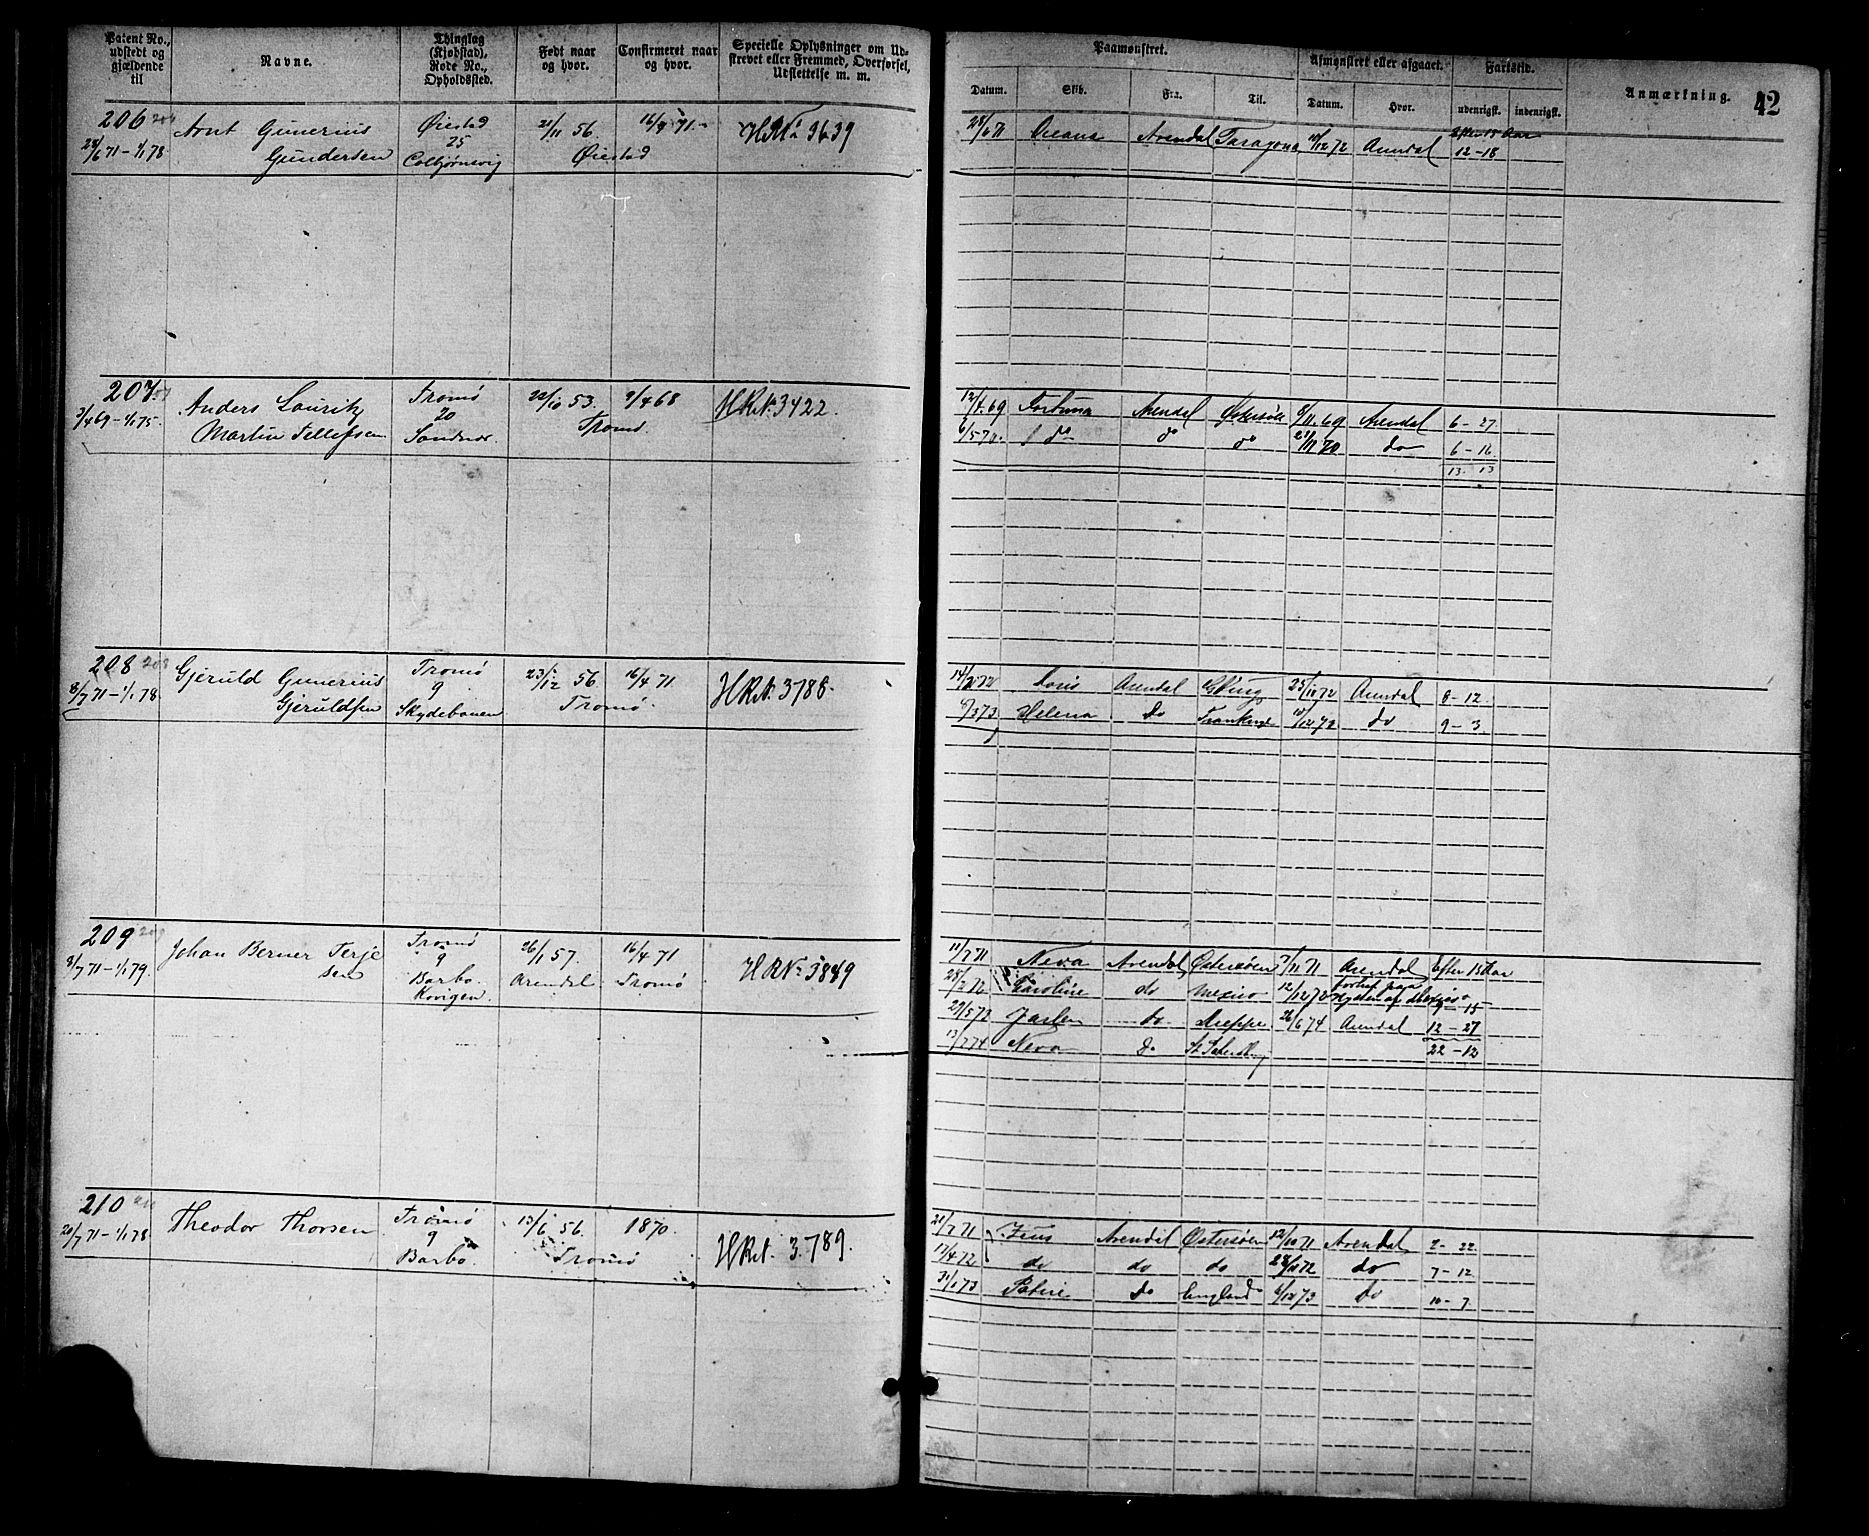 Patent No., udstedt og gjældende til
Navne.
Thinglag (Kjøbstad), Rode No., Opholdssted.
Født naar og hvor.
Confirmeret naar og hvor.
Specielle Oplysninger om Udskrevet eller Fremmed, Overførsel, Udslettelse m. m.
Paamønstret.
Datum. Skib. Fra. Til.
Afmønstret eller afgaaet.
Datum. Hvor.
Fartstid.
udenrigsk. indenrigsk.
Anmærkning.
42
206 Arnt Gunerius Øiestad 21/11 56. 16/4 71 HRNo 3639
28/6 71 – 1/1 78 Gundersen 25 Øiestad
Colbjørnsvig
28/6 71 Oceana Arendal Taragona 72 Arendal Efter 15 Aar
12 – 18
207 Anders Lauritz Tromø 22/10 53. 9/4 68 HRNo. 3422.
3/4 69 – 1/1 75. Martin Tellefsen 20 Tromø.
Sandnæs
69 Fortuna Arendal Østersøen 9/11. 69 Arendal 6 – 27
6/5 70. do do do 70 do 6 – 16
13. 13
208 Gjeruld Gunerius Tromø 23/12 56. 16/4 71 HRNo. 3788.
8/7 71 – 1/1 78. Gjeruldsen 9 Tromø.
Skydebanen
72 Arendal 72 Arendal 8 – 12.
6/3 73 Helena do 73 do 9 – 3
209 Johan Berner Terje Tromø 26/1 57. 16/4 71 HRNo 3849
3/7 71 – 1/1 79. sen 9 Arendal Tromø
Barbo.
Kovigen.
11/7 71 Neva Arendal Østersøen 71 Arendal Efter 15 Aar
72 Caroline do Mexico 12/12 72 9 – 15
72 do Dieppe 26/6 74 Arendal 12 – 27
13/7 74 Neva do 22 – 12
210 Theodor Thorsen Tromø 13/6 56. 1870. HRNo. 3789.
20/7 71 – 1/1 78. 9 Tromø
Barbo.
21/7 71 Zeus Arendal Østersøen 12/10 71 Arendal 2 – 22.
17/4 72 do do do 72 do 7 – 12
31/1 73 do England 73 do 10 – 7.